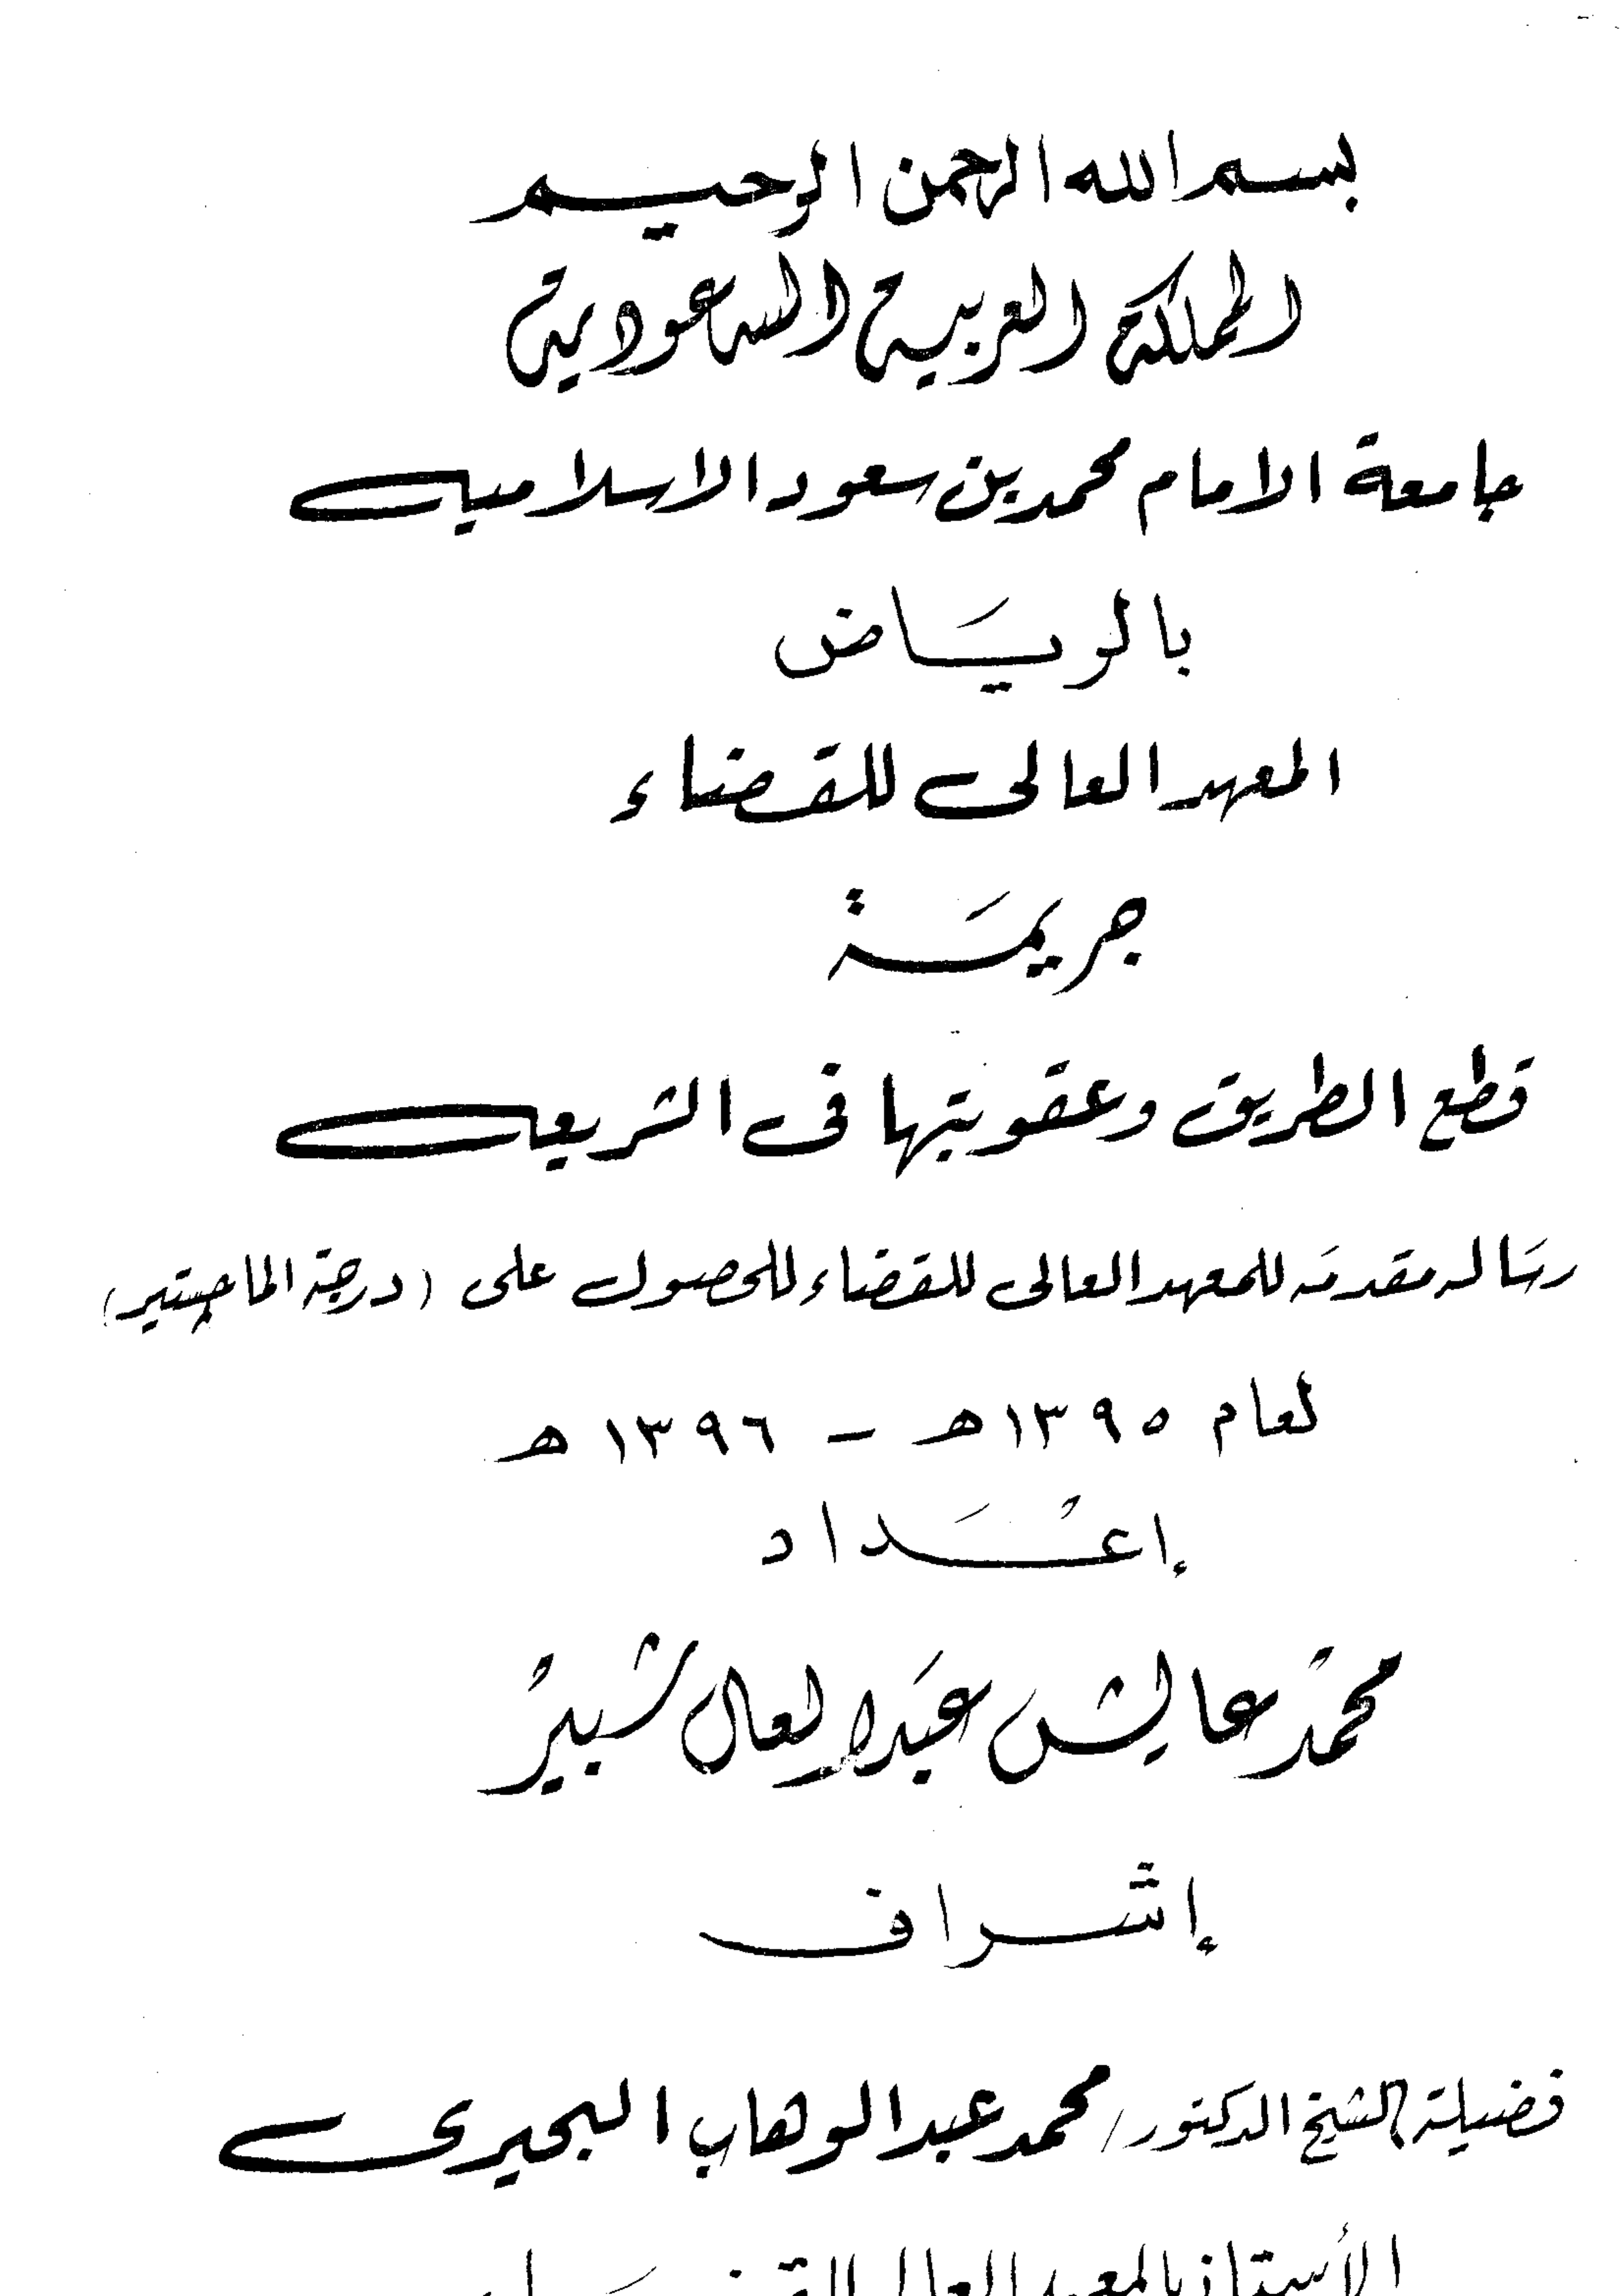 بسم الله الرحمن الرحيم
المملكة العربية السعودية
جامعة الامام محمد بن سعود الاسلامية
بالريَاض
المعهد العالى للقضاء
جريمَة
قطع الطريق وعقوبتها فى الشريعة
رسَاله مقدمَه للمعهد العالى للقضاء للحصول على (درجة الماجستير)
لعام ١٣٩٥ھ - ١٣٩٦ ھ
إعْدَاد
محمّد عايش عبَد العال شبيرْ
إشراف
فضيلة الشيخ الدكتور / محمد عبد الوهاب البحيرى
الأستاذ بالمعهد العالى